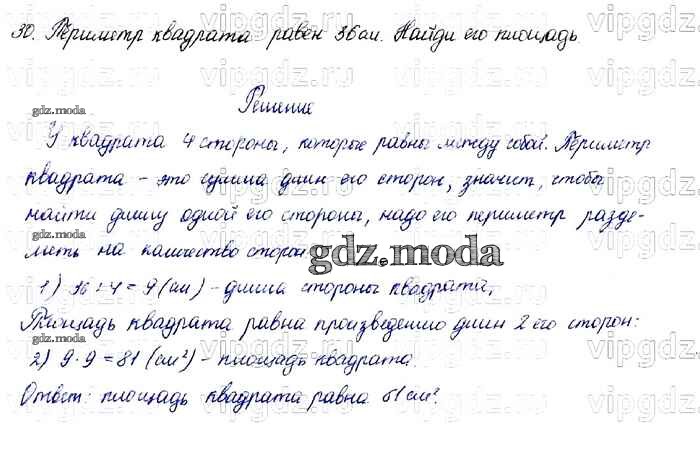 30. Периметр квадрата равен 36 см. Найди его площадь.
Решение
У квадрата 4 стороны, которые равны между собой. Периметр
квадрата - это сумма длин его сторон, значит, чтобы
найти длину одной его стороны, надо его периметр разде-
лить на количество сторон
1) 36 : 4 = 9 (см) - длина стороны квадрата,
Площадь квадрата равна произведению длин 2 его сторон:
2) 9 · 9 = 81 (см²) - площадь квадрата.
Ответ: площадь квадрата равна 81 см².
gdz.moda
gdz.moda
gdz.moda
gdz.moda
vipgdz